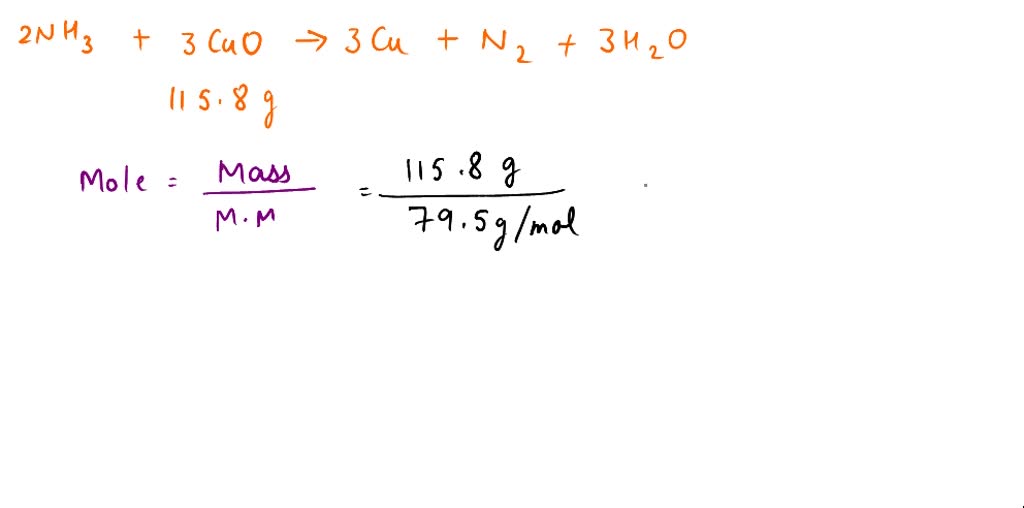 2NH3 + 3CuO → 3Cu + N2 + 3H2O
115.8 g
Mole = Mass / M.M = 115.8 g / 79.5 g/mol